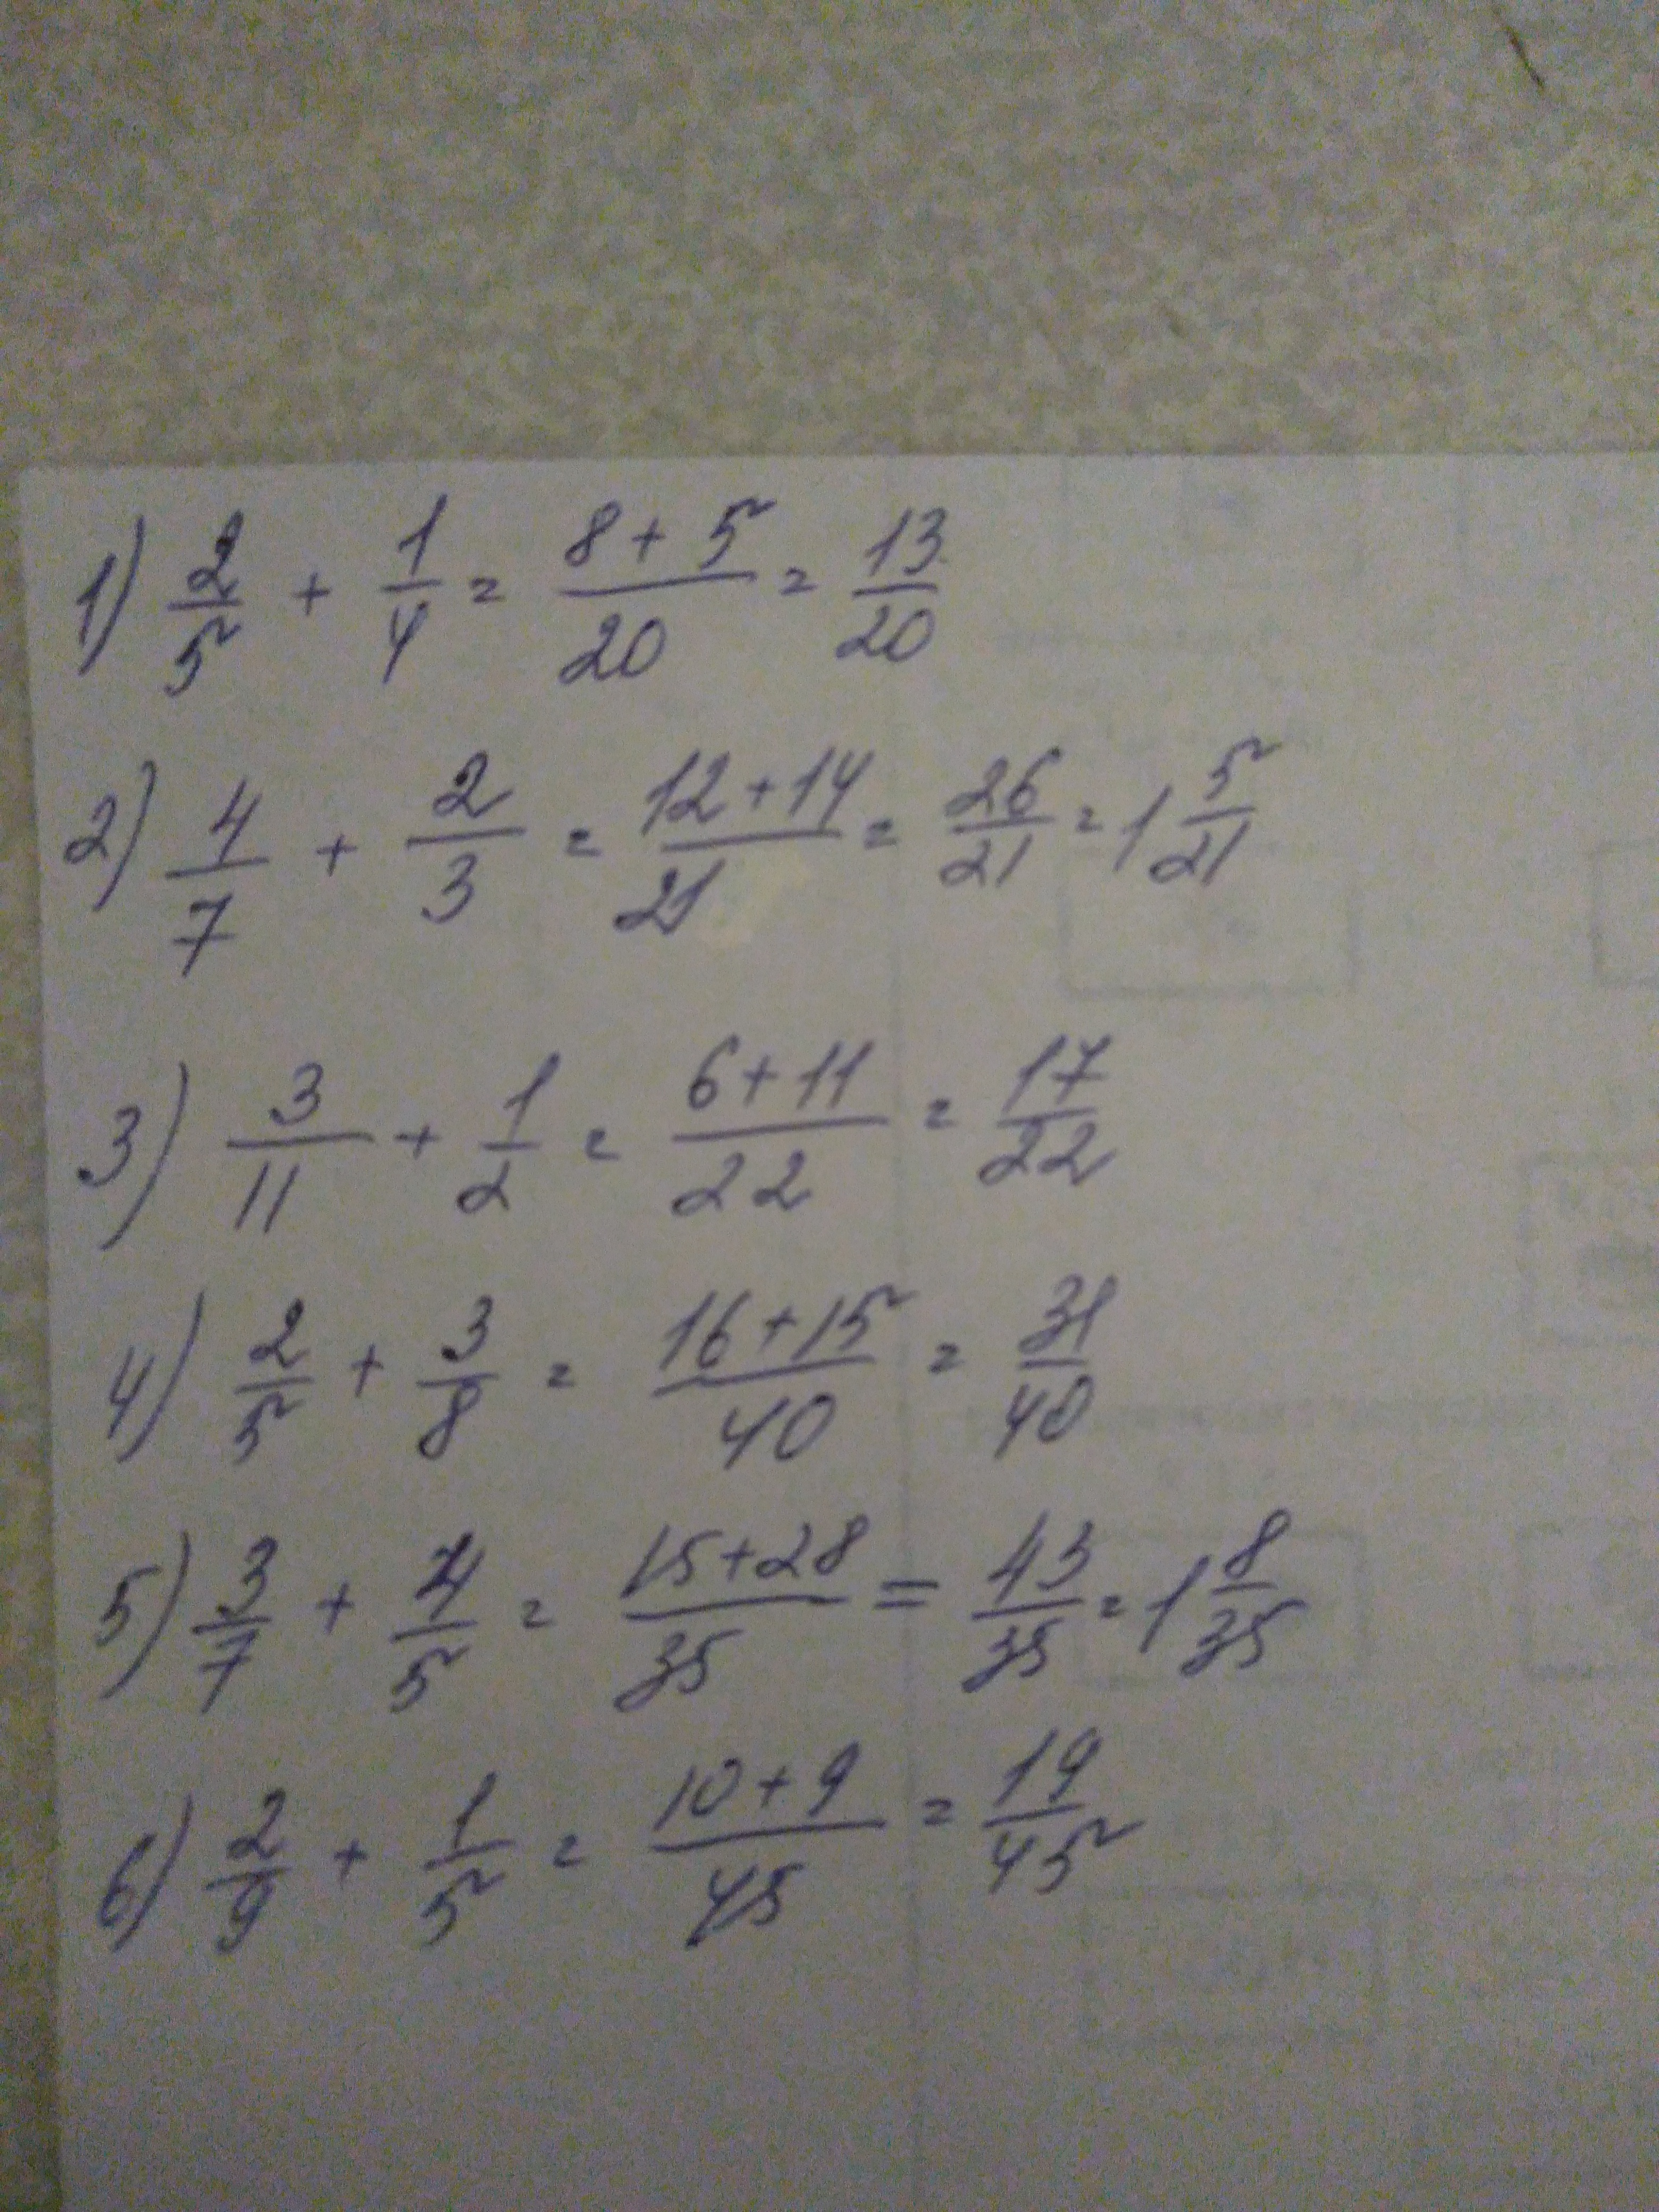 1) 2/5 + 1/4 = (8+5)/20 = 13/20
2) 4/7 + 2/3 = (12+14)/21 = 26/21 = 1 5/21
3) 3/11 + 1/2 = (6+11)/22 = 17/22
4) 2/5 + 3/8 = (16+15)/40 = 31/40
5) 3/7 + 4/5 = (15+28)/35 = 43/35 = 1 8/35
6) 2/9 + 1/5 = (10+9)/45 = 19/45